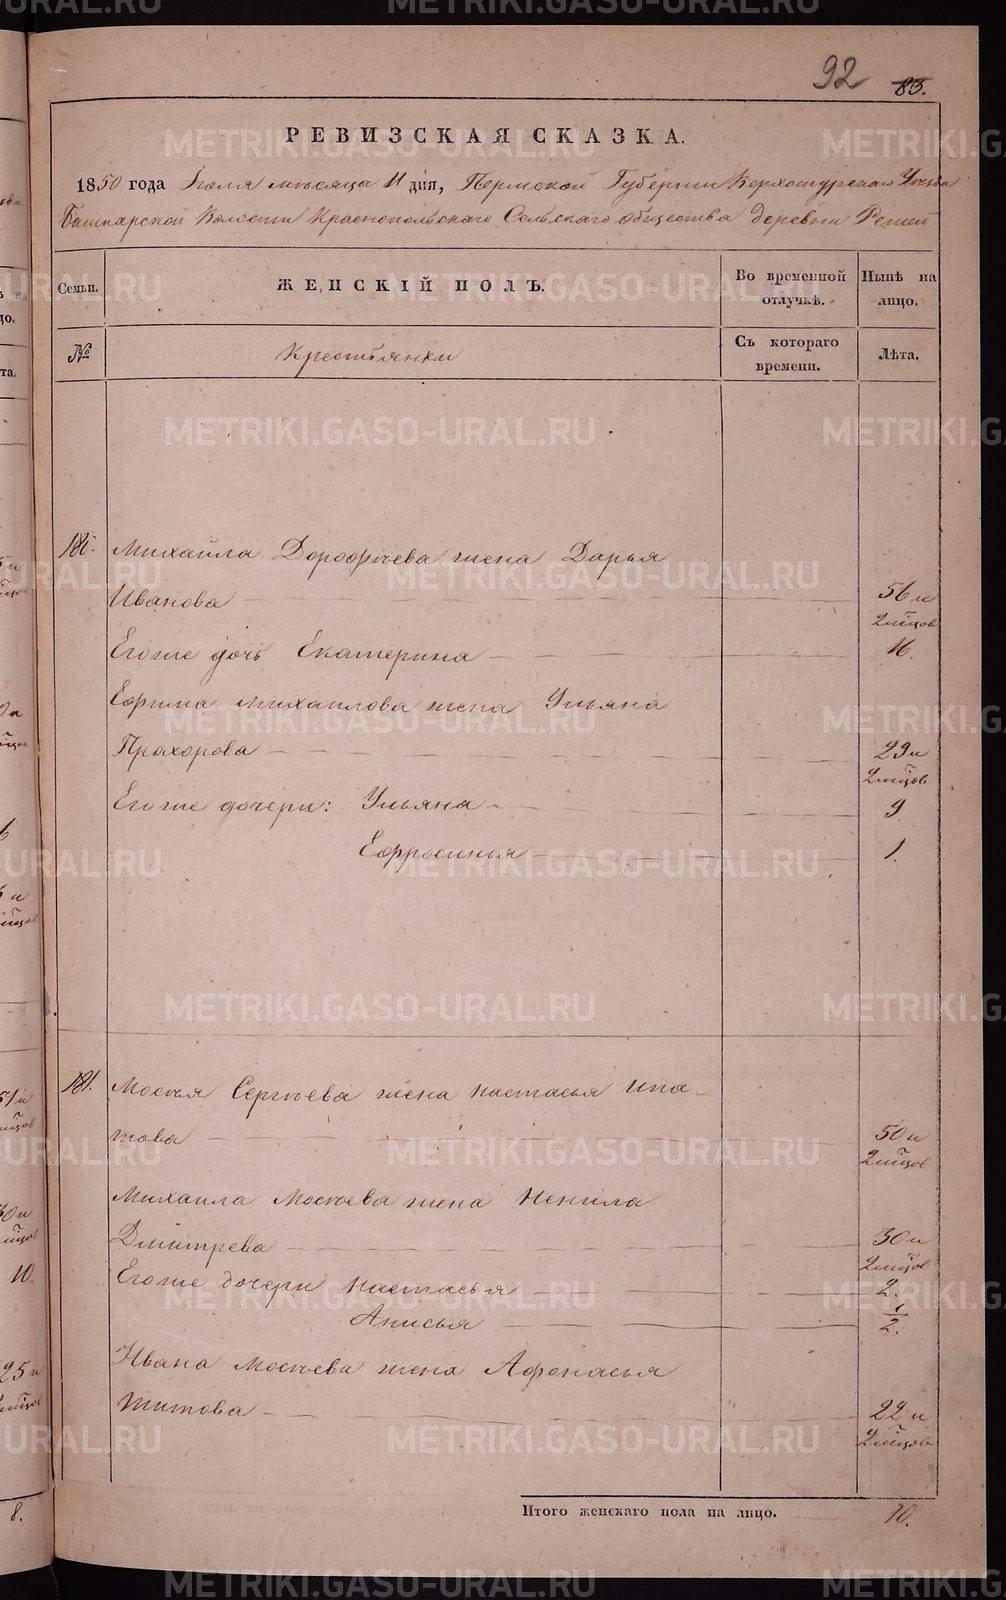 92 83.
РЕВИЗСКАЯ СКАЗКА.
1850 года Іюля мѣсяца 11 дня, Пермской Губерніи Верхотурскаго Уѣзда
Башкарской Волости Краснопольскаго Сельскаго общества деревни Реши
Семьи. ЖЕНСКІЙ ПОЛЪ. Во временной отлучкѣ. Нынѣ на лицо.
№ Крестьянки Съ котораго времени. Лѣта.
180. Михайла Дорофѣева жена Дарья
Иванова 56 и
2 мцов
Его же дочь Екатерина 16.
Ефима Михайлова жена Ульяна
Прохорова 29 и
2 мцов
Его же дочери: Ульяна 9.
Ефросинья 1.
181. Мосея Сергѣева жена Настасья Ипа-
това 50 и
2 мцов
Михаила Мосѣева жена Ненила
Дмитрева 30 и
2 мцов
Его же дочери Настасья 2.
Анисья 1/2.
Ивана Мосѣева жена Афонасья
Титова 22 и
2 мцов
Итого женскаго пола на лицо. 10.
METRIKI.GASO-URAL.RU